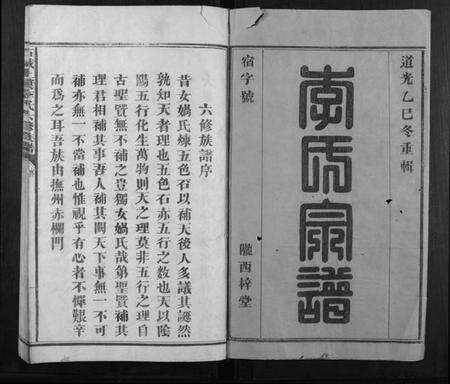 道光乙巳冬重輯
李氏宗譜
宿字號
隴西梓堂
六修族譜序
昔女媧氏煉五色石以補天後人多議其誕然
孰知天者理也五色石亦五行之數也天以陰
陽五行化生萬物則天之理莫非五行之理自
古聖賢無不補之豈獨女媧氏哉第聖賢補其
理君相補其事吾人補其間天下事無一不可
補亦無一不當補也惟視乎有心者不憚艱辛
而為之耳吾族由撫州赤欄門